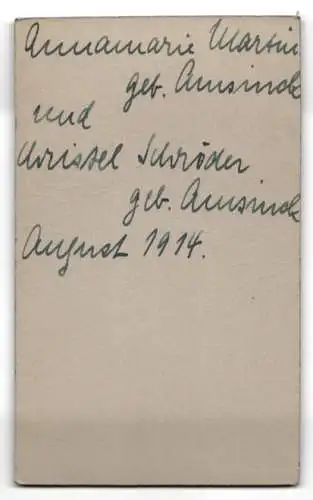 Annamarie Martin
geb. Amsinck
und
Christel Schröder
geb. Amsinck
August 1914.